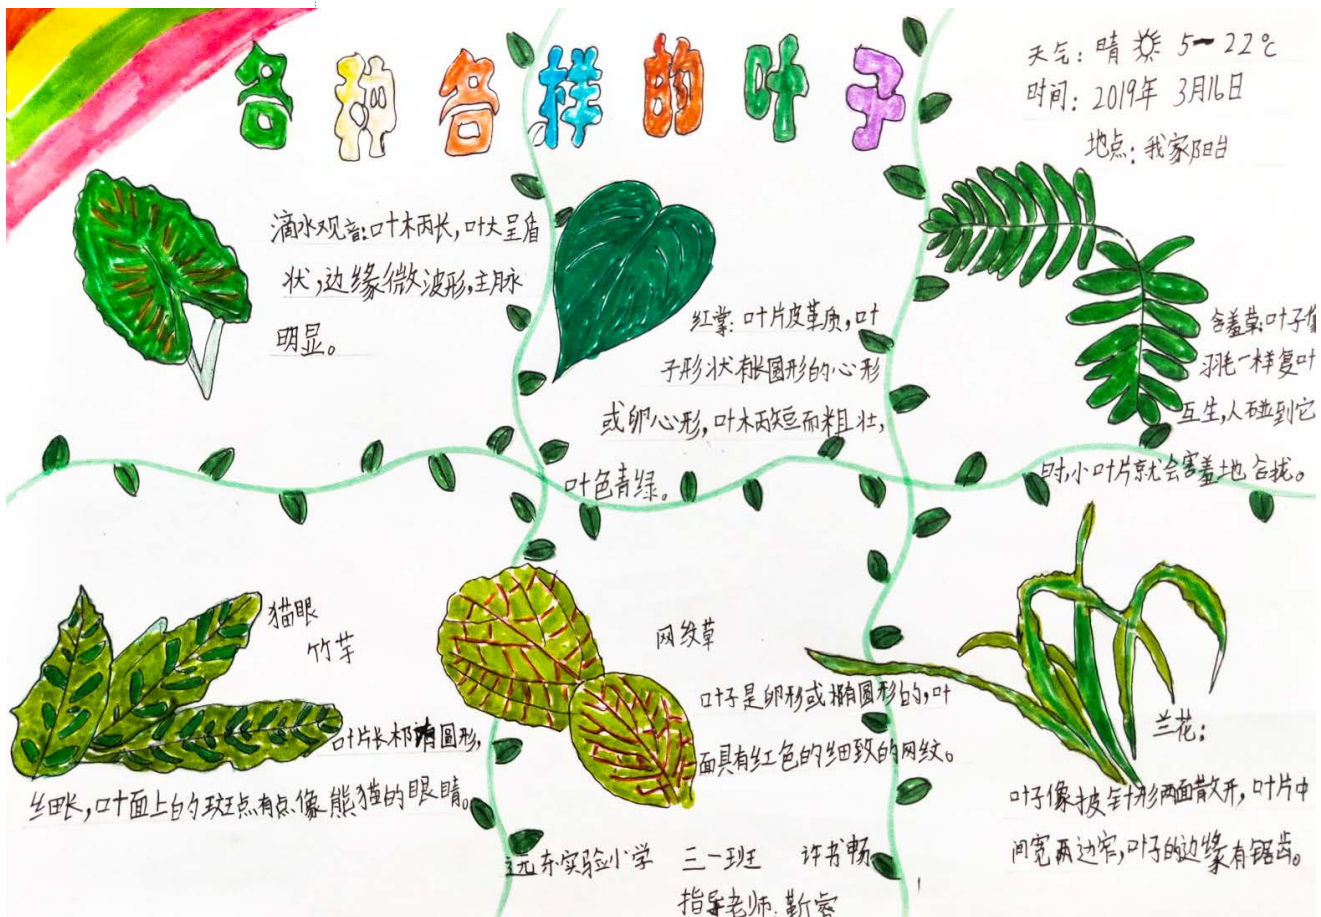 各种各样的叶子
天气：晴 5~22℃
时间：2019年 3月16日
地点：我家阳台
滴水观音：叶柄长，叶大呈盾
状，边缘微波形，主脉
明显。
红掌：叶片皮革质，叶
子形状有长圆形的心形
或卵心形，叶柄短而粗壮，
叶色青绿。
含羞草：叶子像
羽毛一样复叶
互生，人碰到它
时，小叶片就会害羞地合拢。
猫眼
竹芋
叶片长椭圆形，
细长，叶面上的斑点有点像熊猫的眼睛。
网纹草
叶子是卵形或椭圆形的，叶
面具有红色的细致的网纹。
兰花：
叶子像披针形两面散开，叶片中
间宽两边窄，叶子的边缘有锯齿。
远东实验小学 三一班 许书畅
指导老师：靳睿